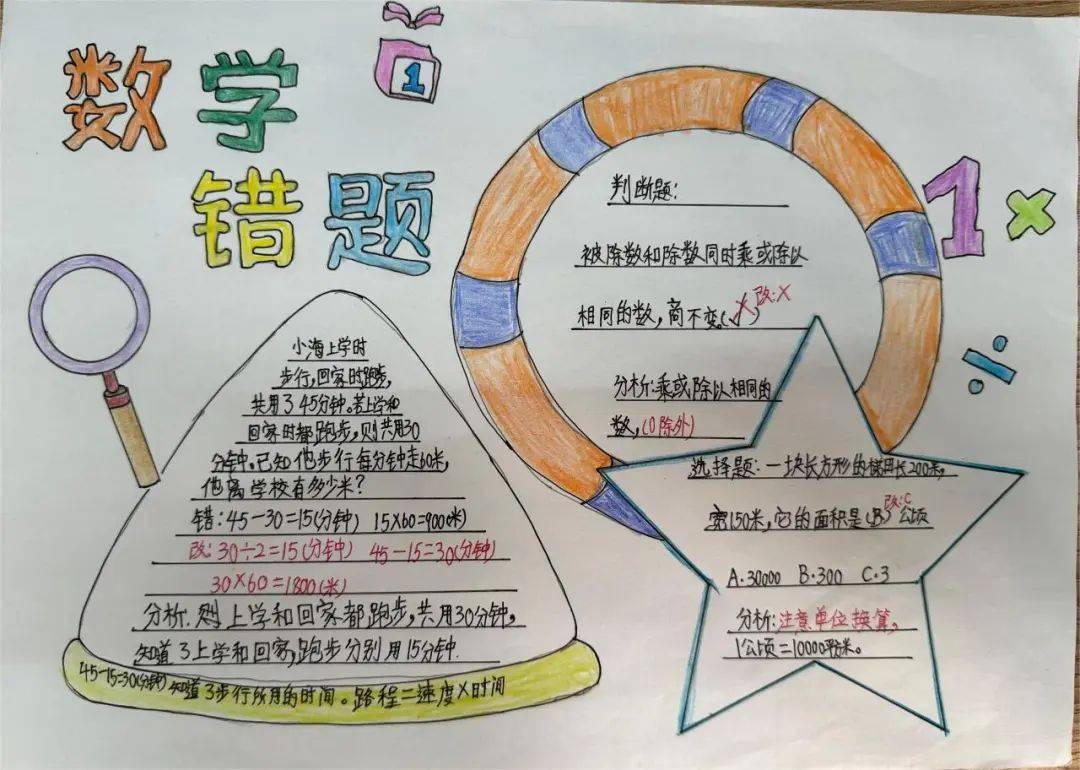 数学
错题
1
1×
÷
小海上学时
步行,回家时跑步,
共用了45分钟。若上学和
回家时都跑步,则共用30
分钟。已知他步行每分钟走60米,
他离学校有多少米?
错:45-30=15(分钟) 15×60=900(米)
改:30÷2=15(分钟) 45-15=30(分钟)
30×60=1800(米)
分析:上学和回家都跑步,共用30分钟,
知道了上学和回家,跑步分别用15分钟.
45-15=30(分钟)知道了步行所用的时间。路程=速度×时间
判断题:
被除数和除数同时乘或除以
相同的数,商不变。(√) 改:×
分析:乘或除以相同的
数,(0除外)
选择题:一块长方形的梯田长200米,
宽150米,它的面积是(B)公顷 改:C
A.30000 B.300 C.3
分析:注意单位换算,
1公顷=10000平方米。